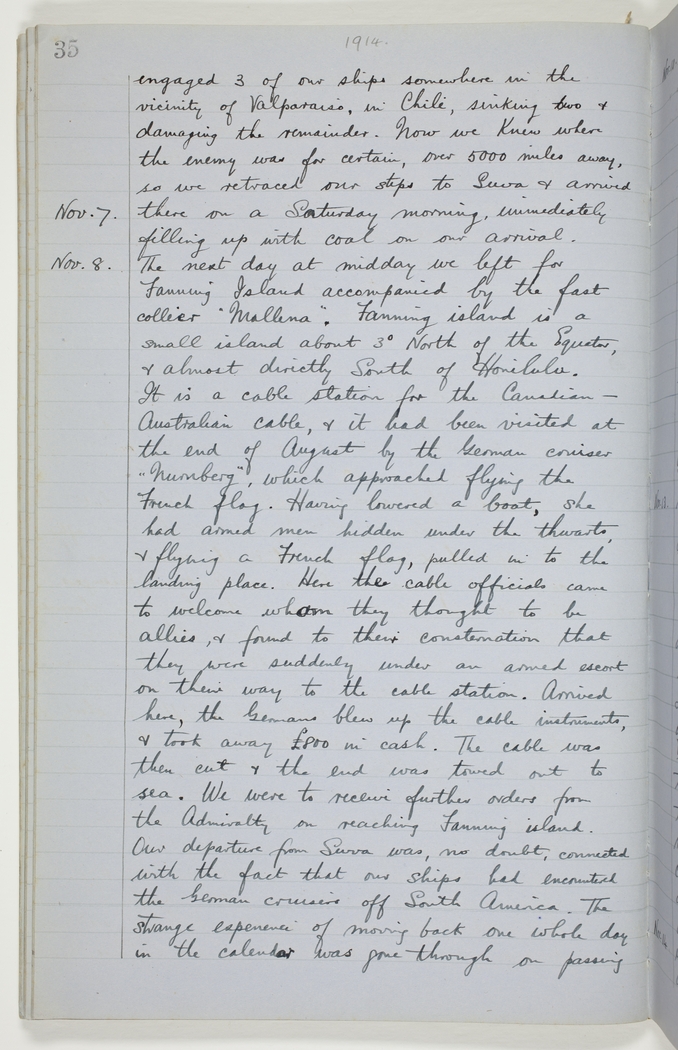 35
1914.
engaged 3 of our ships somewhere in the
vicinity of Valparaiso, in Chilé, sinking two &
damaging the remainder. Now we knew where
the enemy was for certain, over 5000 miles away,
so we retraced our steps to Suva & arrived
Nov. 7. there on a Saturday morning, immediately
filling up with coal on our arrival.
Nov. 8. The next day at midday we left for
Fanning Island accompanied by the fast
collier "Mallena". Fanning island is a
small island about 3° North of the Equator,
& almost directly South of Honilulu.
It is a cable station for the Canadian-
Australian cable, & it had been visited at
the end of August by the German cruiser
"Nurnberg", which approached flying the
French flag. Having lowered a boat, she
had armed men hidden under the thwarts,
& flying a French flag, pulled in to the
landing place. Here the cable officials came
to welcome whom they thought to be
allies, & found to their consternation that
they were suddenly under an armed escort
on their way to the cable station. Arrived
here, the Germans blew up the cable instruments,
& took away £800 in cash. The cable was
then cut & the end was towed out to
sea. We were to receive further orders from
the Admiralty on reaching Fanning island.
Our departure from Suva was, no doubt, connected
with the fact that our ships had encountered
the German cruisers off South America. The
strange experience of moving back one whole day
in the calendar was gone through on passing